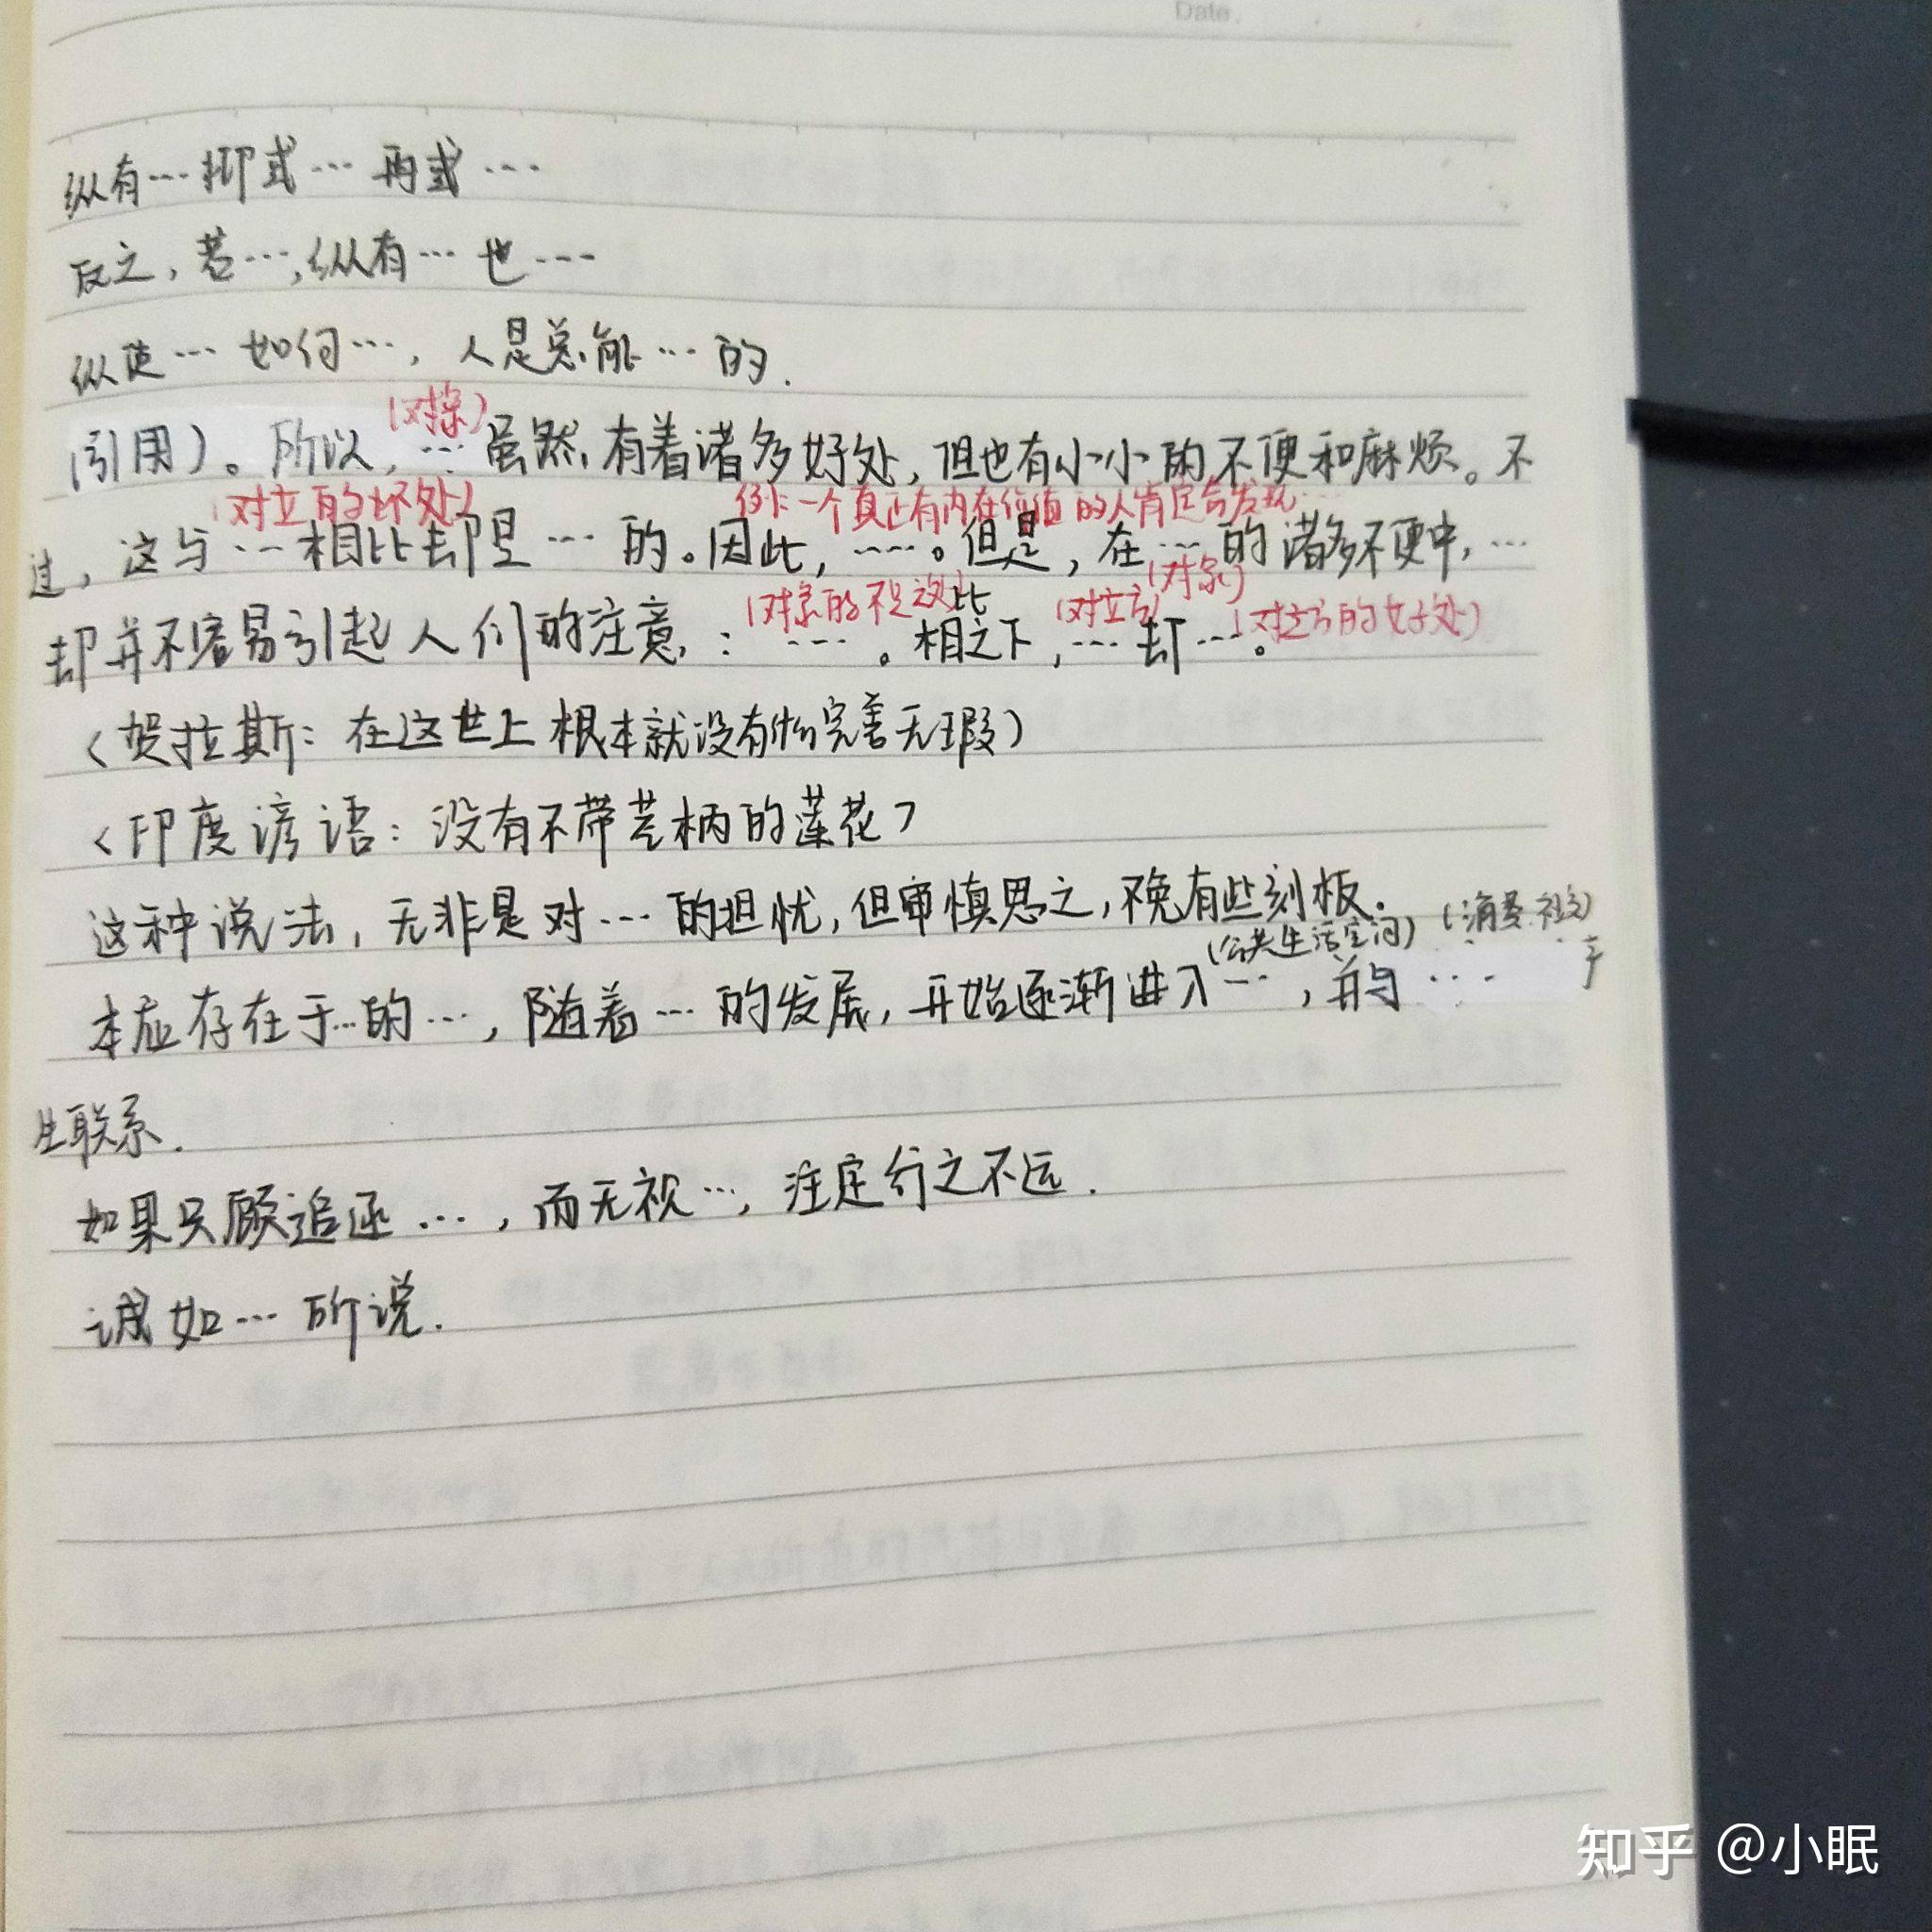 Date.
纵有…抑或…再或…
反之，若…，纵有…也…
纵使…如何…，人是总能…的.
(对象)
(引用)。所以，…虽然有着诸多好处，但也有小小的不便和麻烦。不
(对立的坏处) 例：一个真正有内在价值的人肯定会发现…
过，这与…相比却是…的。因此，……。但是，在…的诸多不便中，…
(对象的不足之处) (对立方) (对象) (对立方的好处)
却并不容易引起人们的注意：…。相比之下，…却…。
<贺拉斯：在这世上根本就没有什么完善无瑕)
<印度谚语：没有不带茎柄的莲花>
这种说法，无非是对…的担忧，但审慎思之，不免有些刻板.
(公共生活空间) (消费社交)
本应存在于…的…，随着…的发展，开始逐渐进入…，并与…产
生联系.
如果只顾追逐…，而无视…，注定行之不远.
诚如…所说.
知乎 @小眠